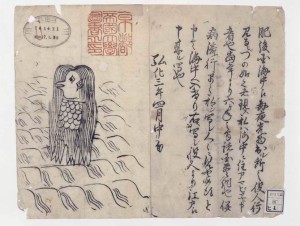 肥後国海中え毎夜光物出ル所之役人行
見るニづの如く者現ス私ハ海中ニ住アマビヱト申
者也当年より六ヶ年之間諸国豊作也併
病流行早々私ヲ写シ人々ニ見せ候得と
申て海中へ入けり右ハ写シ役人より江戸え
申来ル写也
弘化三年四月中旬